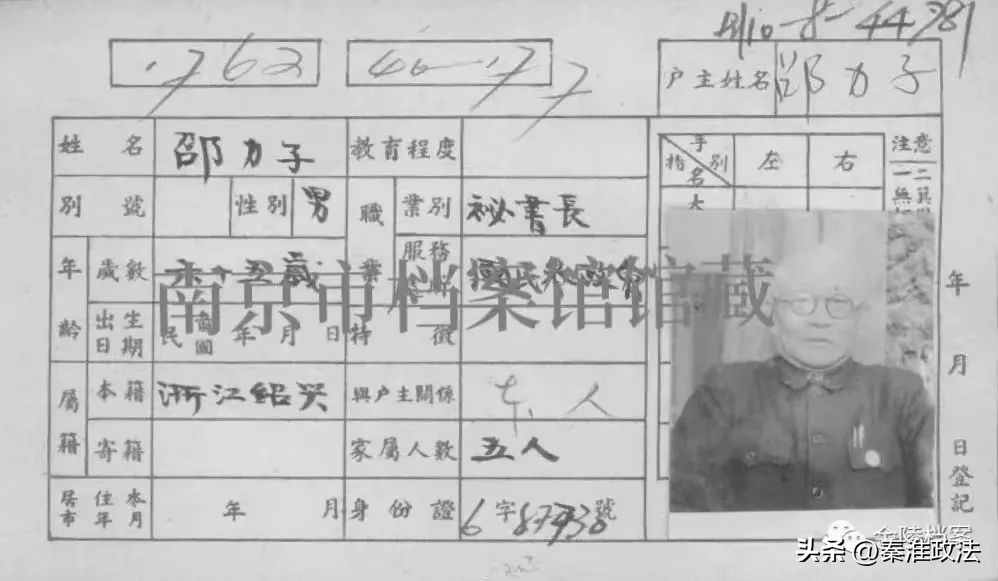 762
户主姓名 邵力子
姓名 邵力子 教育程度
手別 指名 左 右
注意
別號 性別 男 職業 業別 祕書長
年齡 歲數 六十五歲 服務
南京市档案馆馆藏
出生日期 民國 年 月 日 特徵
屬籍 本籍 浙江紹兴 與户主關係 本人
寄籍 家屬人数 五人
居住本市年月 年 月 身份證 6字 號
年 月 日登記
金陵档案
头条@秦淮政法